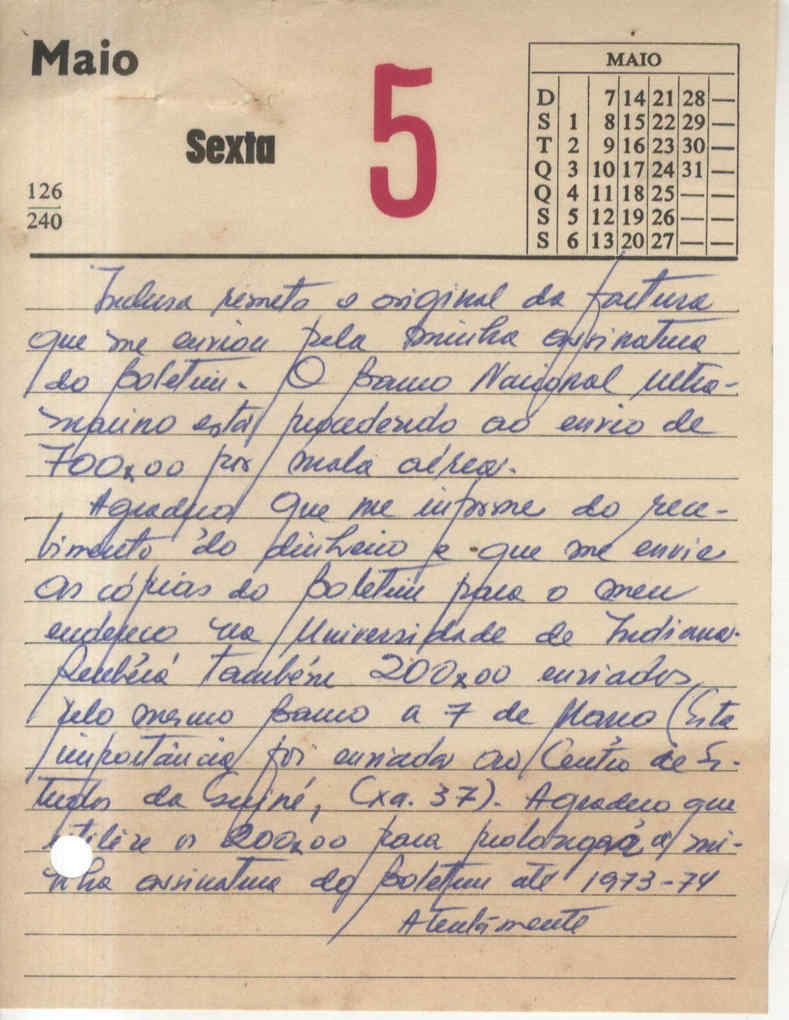 Maio
Sexta
5
126
240
MAIO
D 7 14 21 28 —
S 1 8 15 22 29 —
T 2 9 16 23 30 —
Q 3 10 17 24 31 —
Q 4 11 18 25 — —
S 5 12 19 26 — —
S 6 13 20 27 — —
Inclusa remeto o original da factura
que me enviou pela minha assinatura
do Boletim. O Banco Nacional Ultra-
marino está procedendo ao envio de
700x00 por mala aérea.
Agradeço que me informe do rece-
bimento do dinheiro e que me envie
as cópias do Boletim para o meu
endereço na Universidade de Indiana.
Receberá também 200x00 enviados
pelo mesmo Banco a 7 de Março (Esta
importância foi enviada ao Centro de Es-
tudos da Guiné, Cxa. 37). Agradeço que
utilize os 200x00 para prolongar a mi-
nha assinatura do Boletim até 1973-74
Atentamente